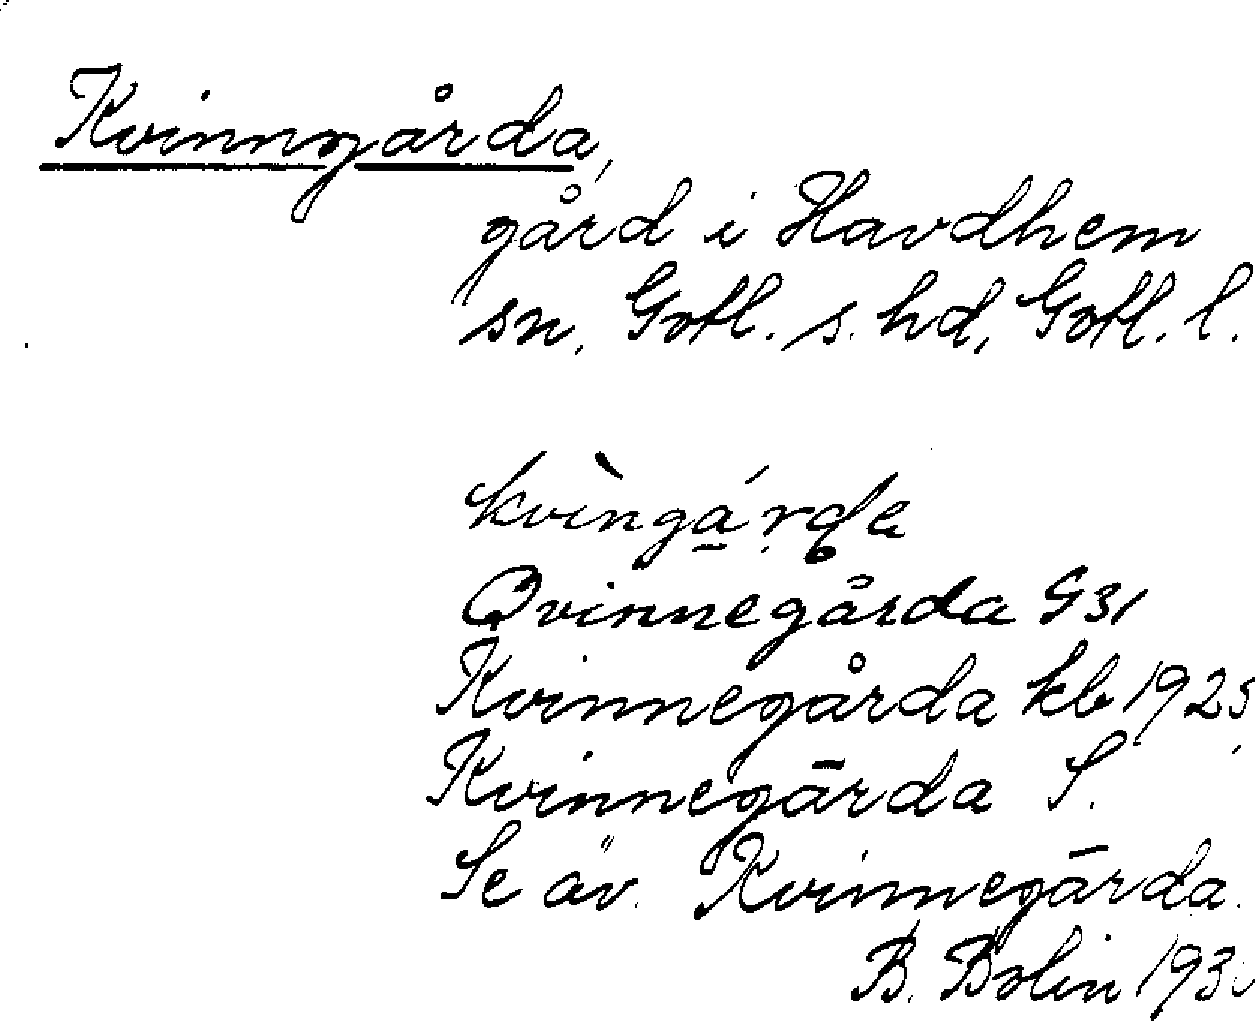 Kvinngårda,
gård i Havdhem
sn, Gotl. s. hd, Gotl. l.
kvìngá̱rde
Qvinnegårda G31
Kvinnegårda kb 1925
Kvinnegārda S.
Se äv. Kvinnegārda.
B. Bolin